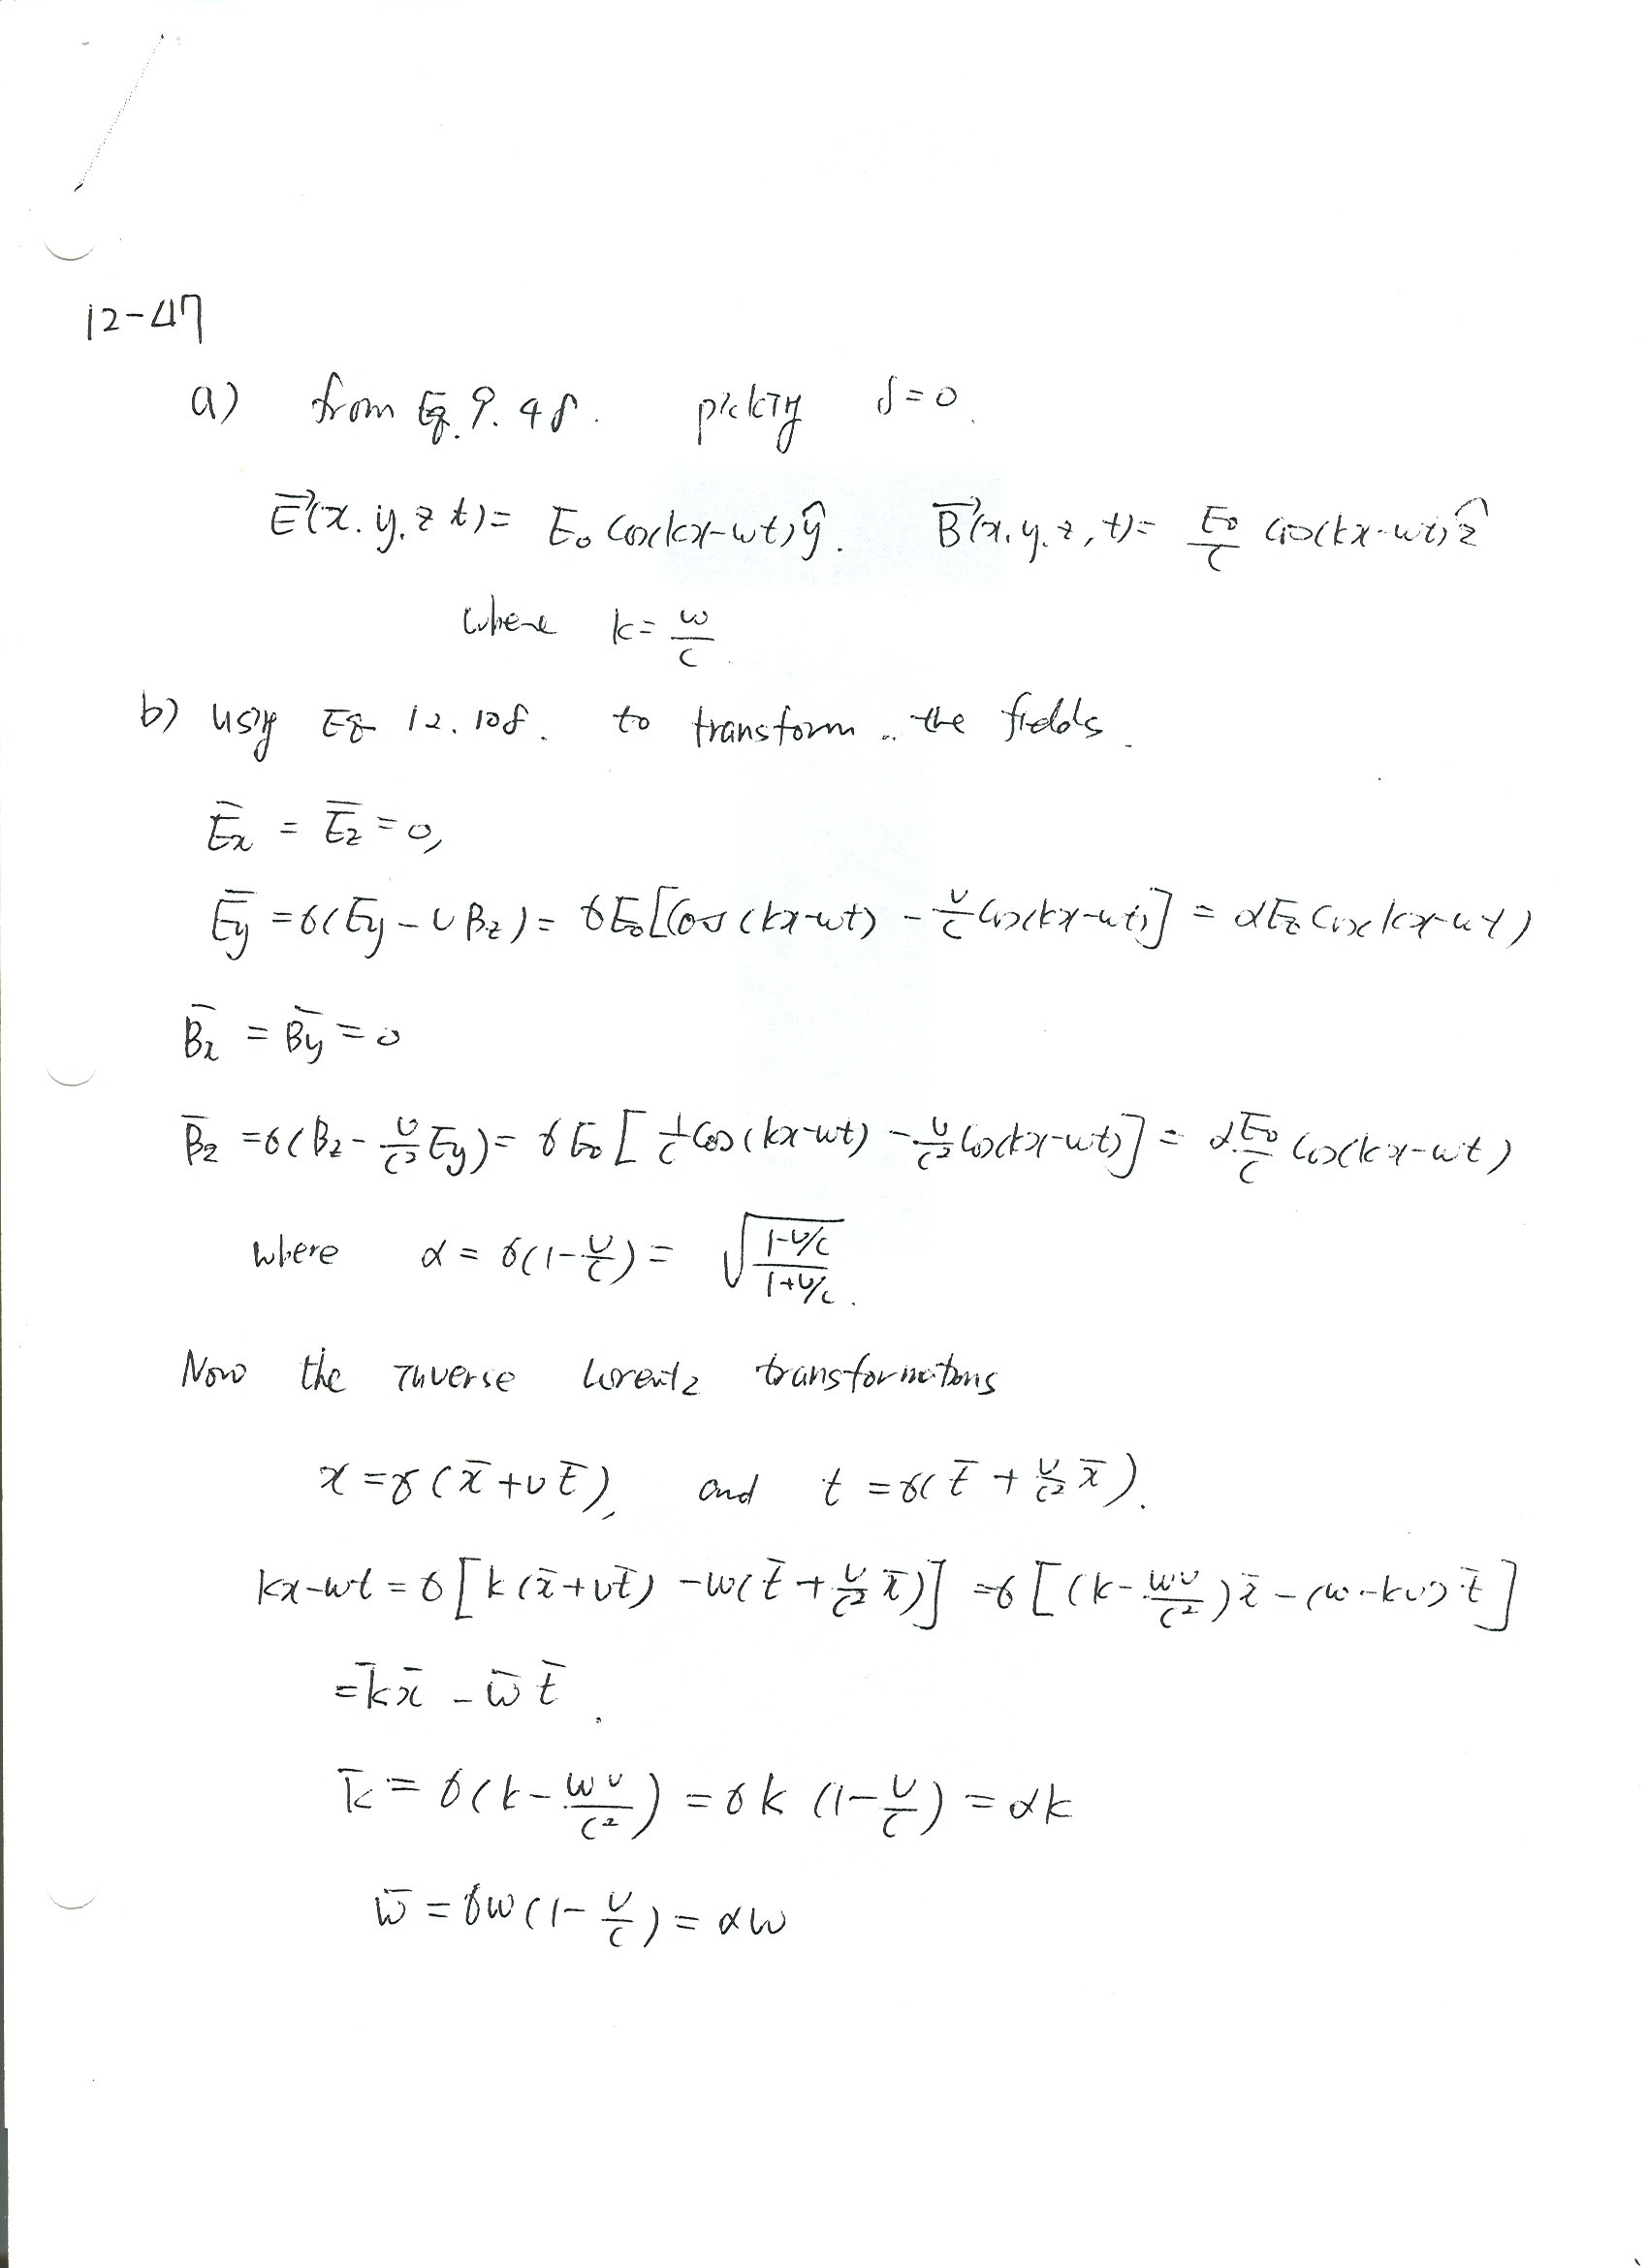 12-47
a) from Eq. 9.48. picking δ=0.
E⃗(x.y.z t)= E₀ cos(kx-ωt)ŷ. B⃗(x.y.z,t)= E₀/c cos(kx-ωt)ẑ
where k= ω/c.
b) using Eq 12.108. to transform the fields.
Ēx = Ēz =0,
Ēy =γ(Ey-υBz)= γE₀[cos(kx-ωt) - υ/c cos(kx-ωt)] = αE₀ cos(kx-ωt)
B̄x = B̄y =0
B̄z =γ(Bz- υ/c² Ey)= γE₀[ 1/c cos(kx-ωt) - υ/c² cos(kx-ωt)] = α E₀/c cos(kx-ωt)
where α = γ(1-υ/c)= √((1-υ/c)/(1+υ/c)).
Now the inverse Lorentz transformations
x =γ(x̄+υt̄), and t =γ(t̄ + υ/c² x̄).
kx-ωt =γ[k(x̄+υt̄) -ω(t̄ + υ/c² x̄)] =γ[(k- ωυ/c²)x̄ -(ω-kυ)t̄]
=k̄x̄ - ω̄t̄.
k̄ = γ(k- ωυ/c²) =γk (1-υ/c) = αk
ω̄ = γω(1- υ/c) = αω